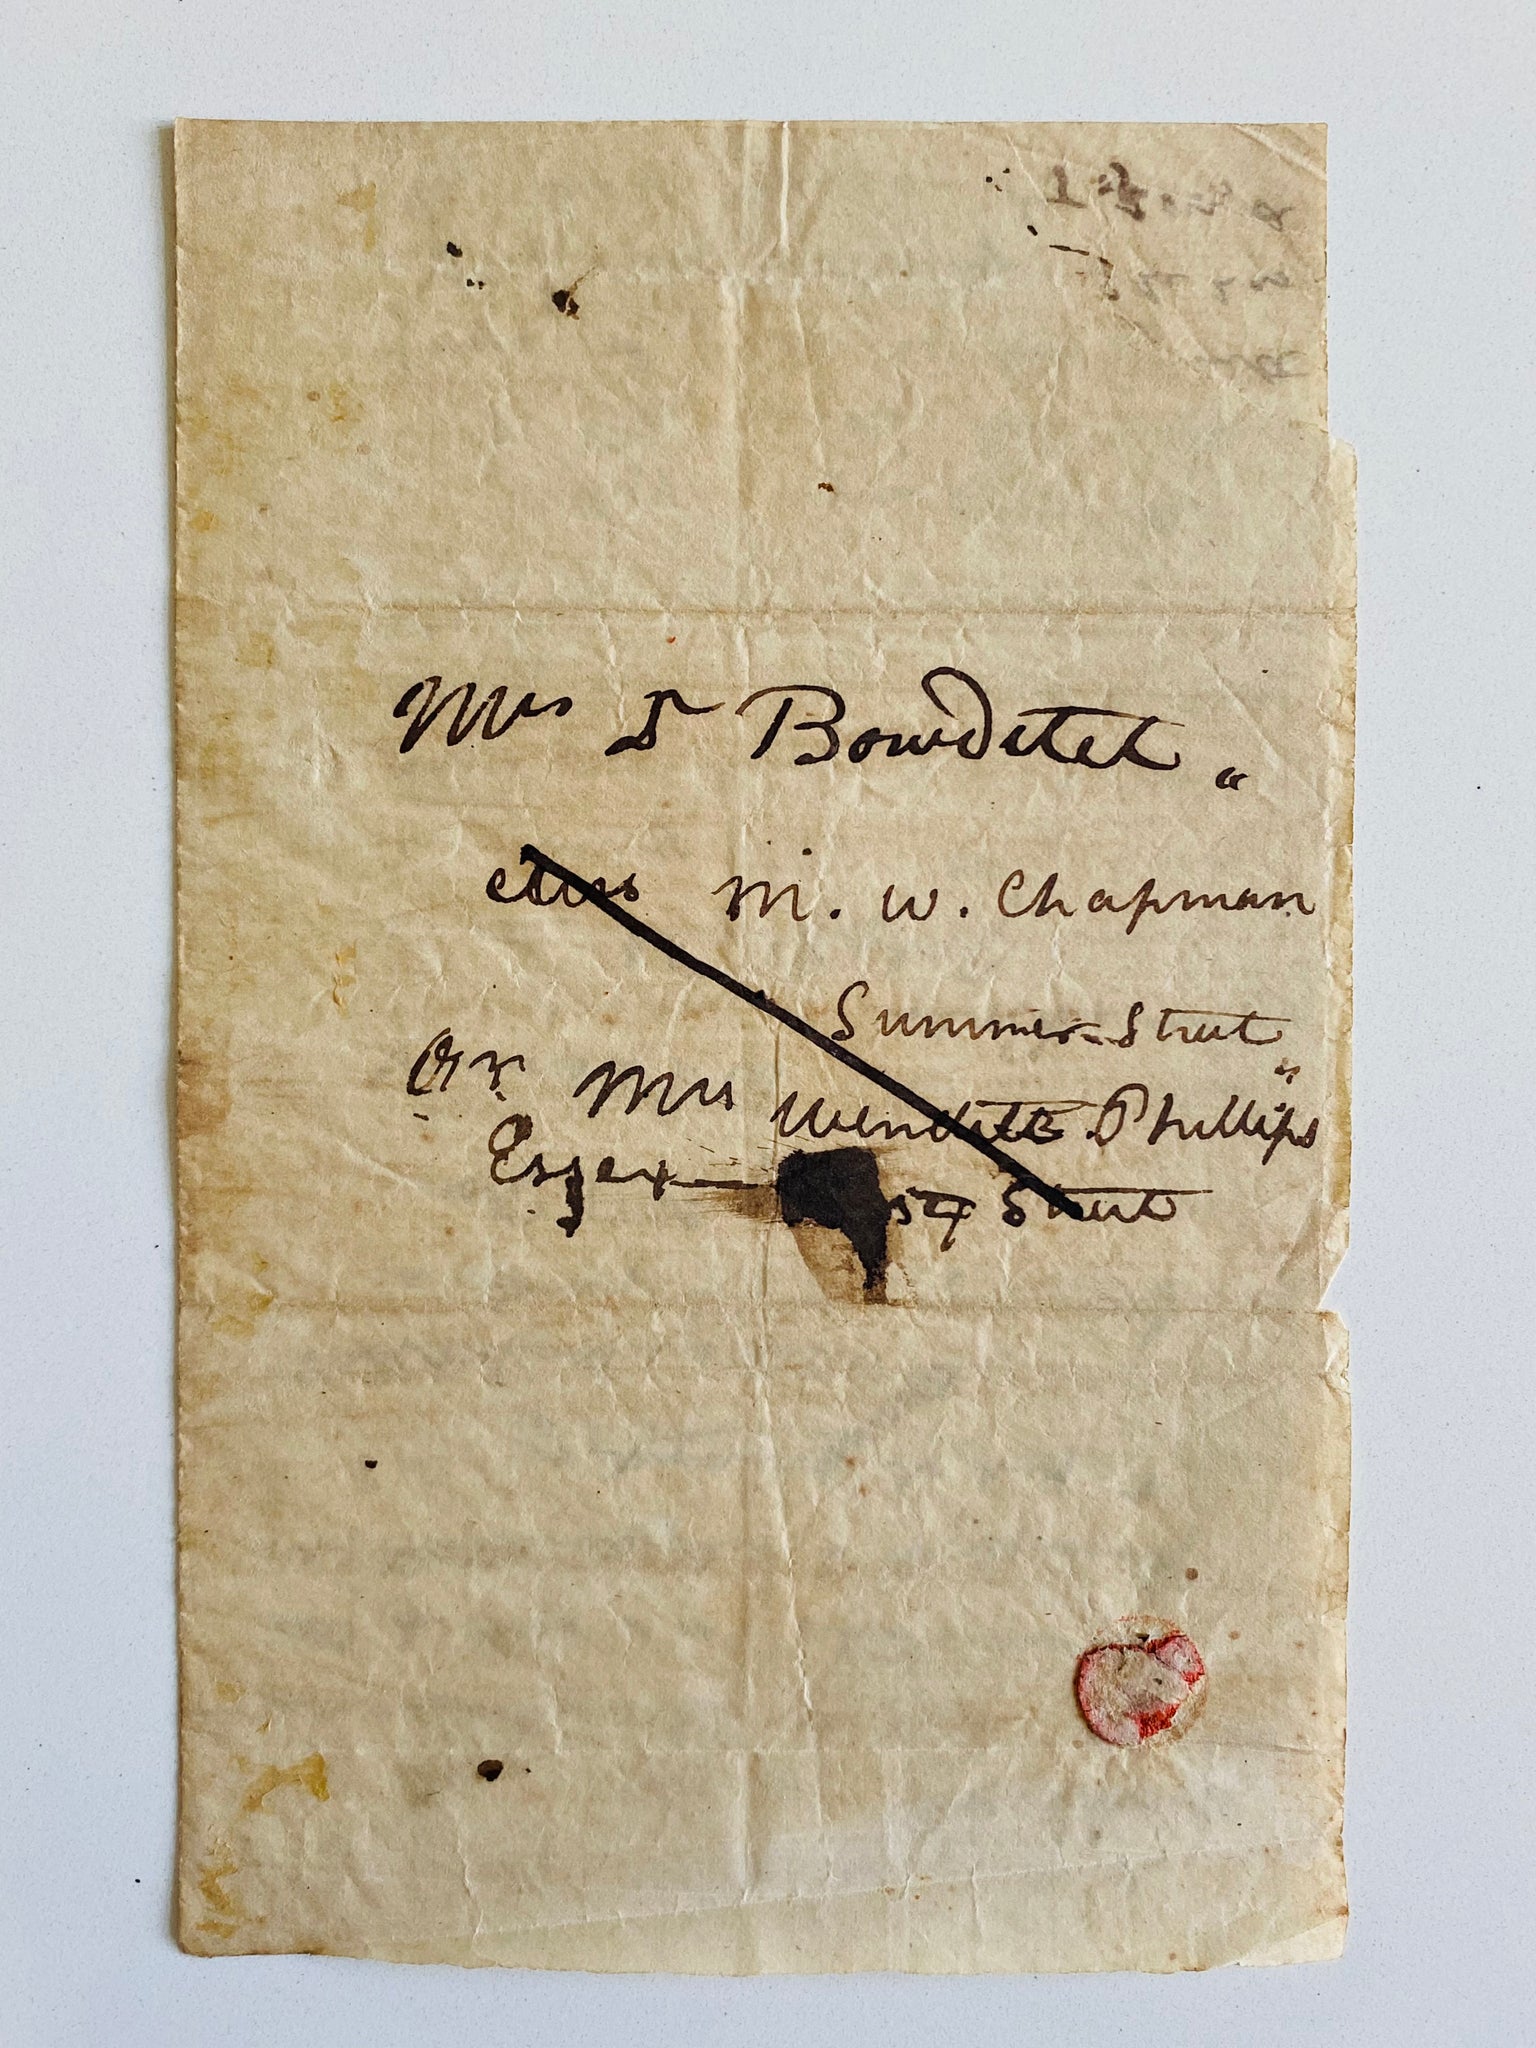 Mrs D Bowditch
Mrs M. W. Chapman
Summer-Street
Or Mrs Wendell Phillips
Essex Street